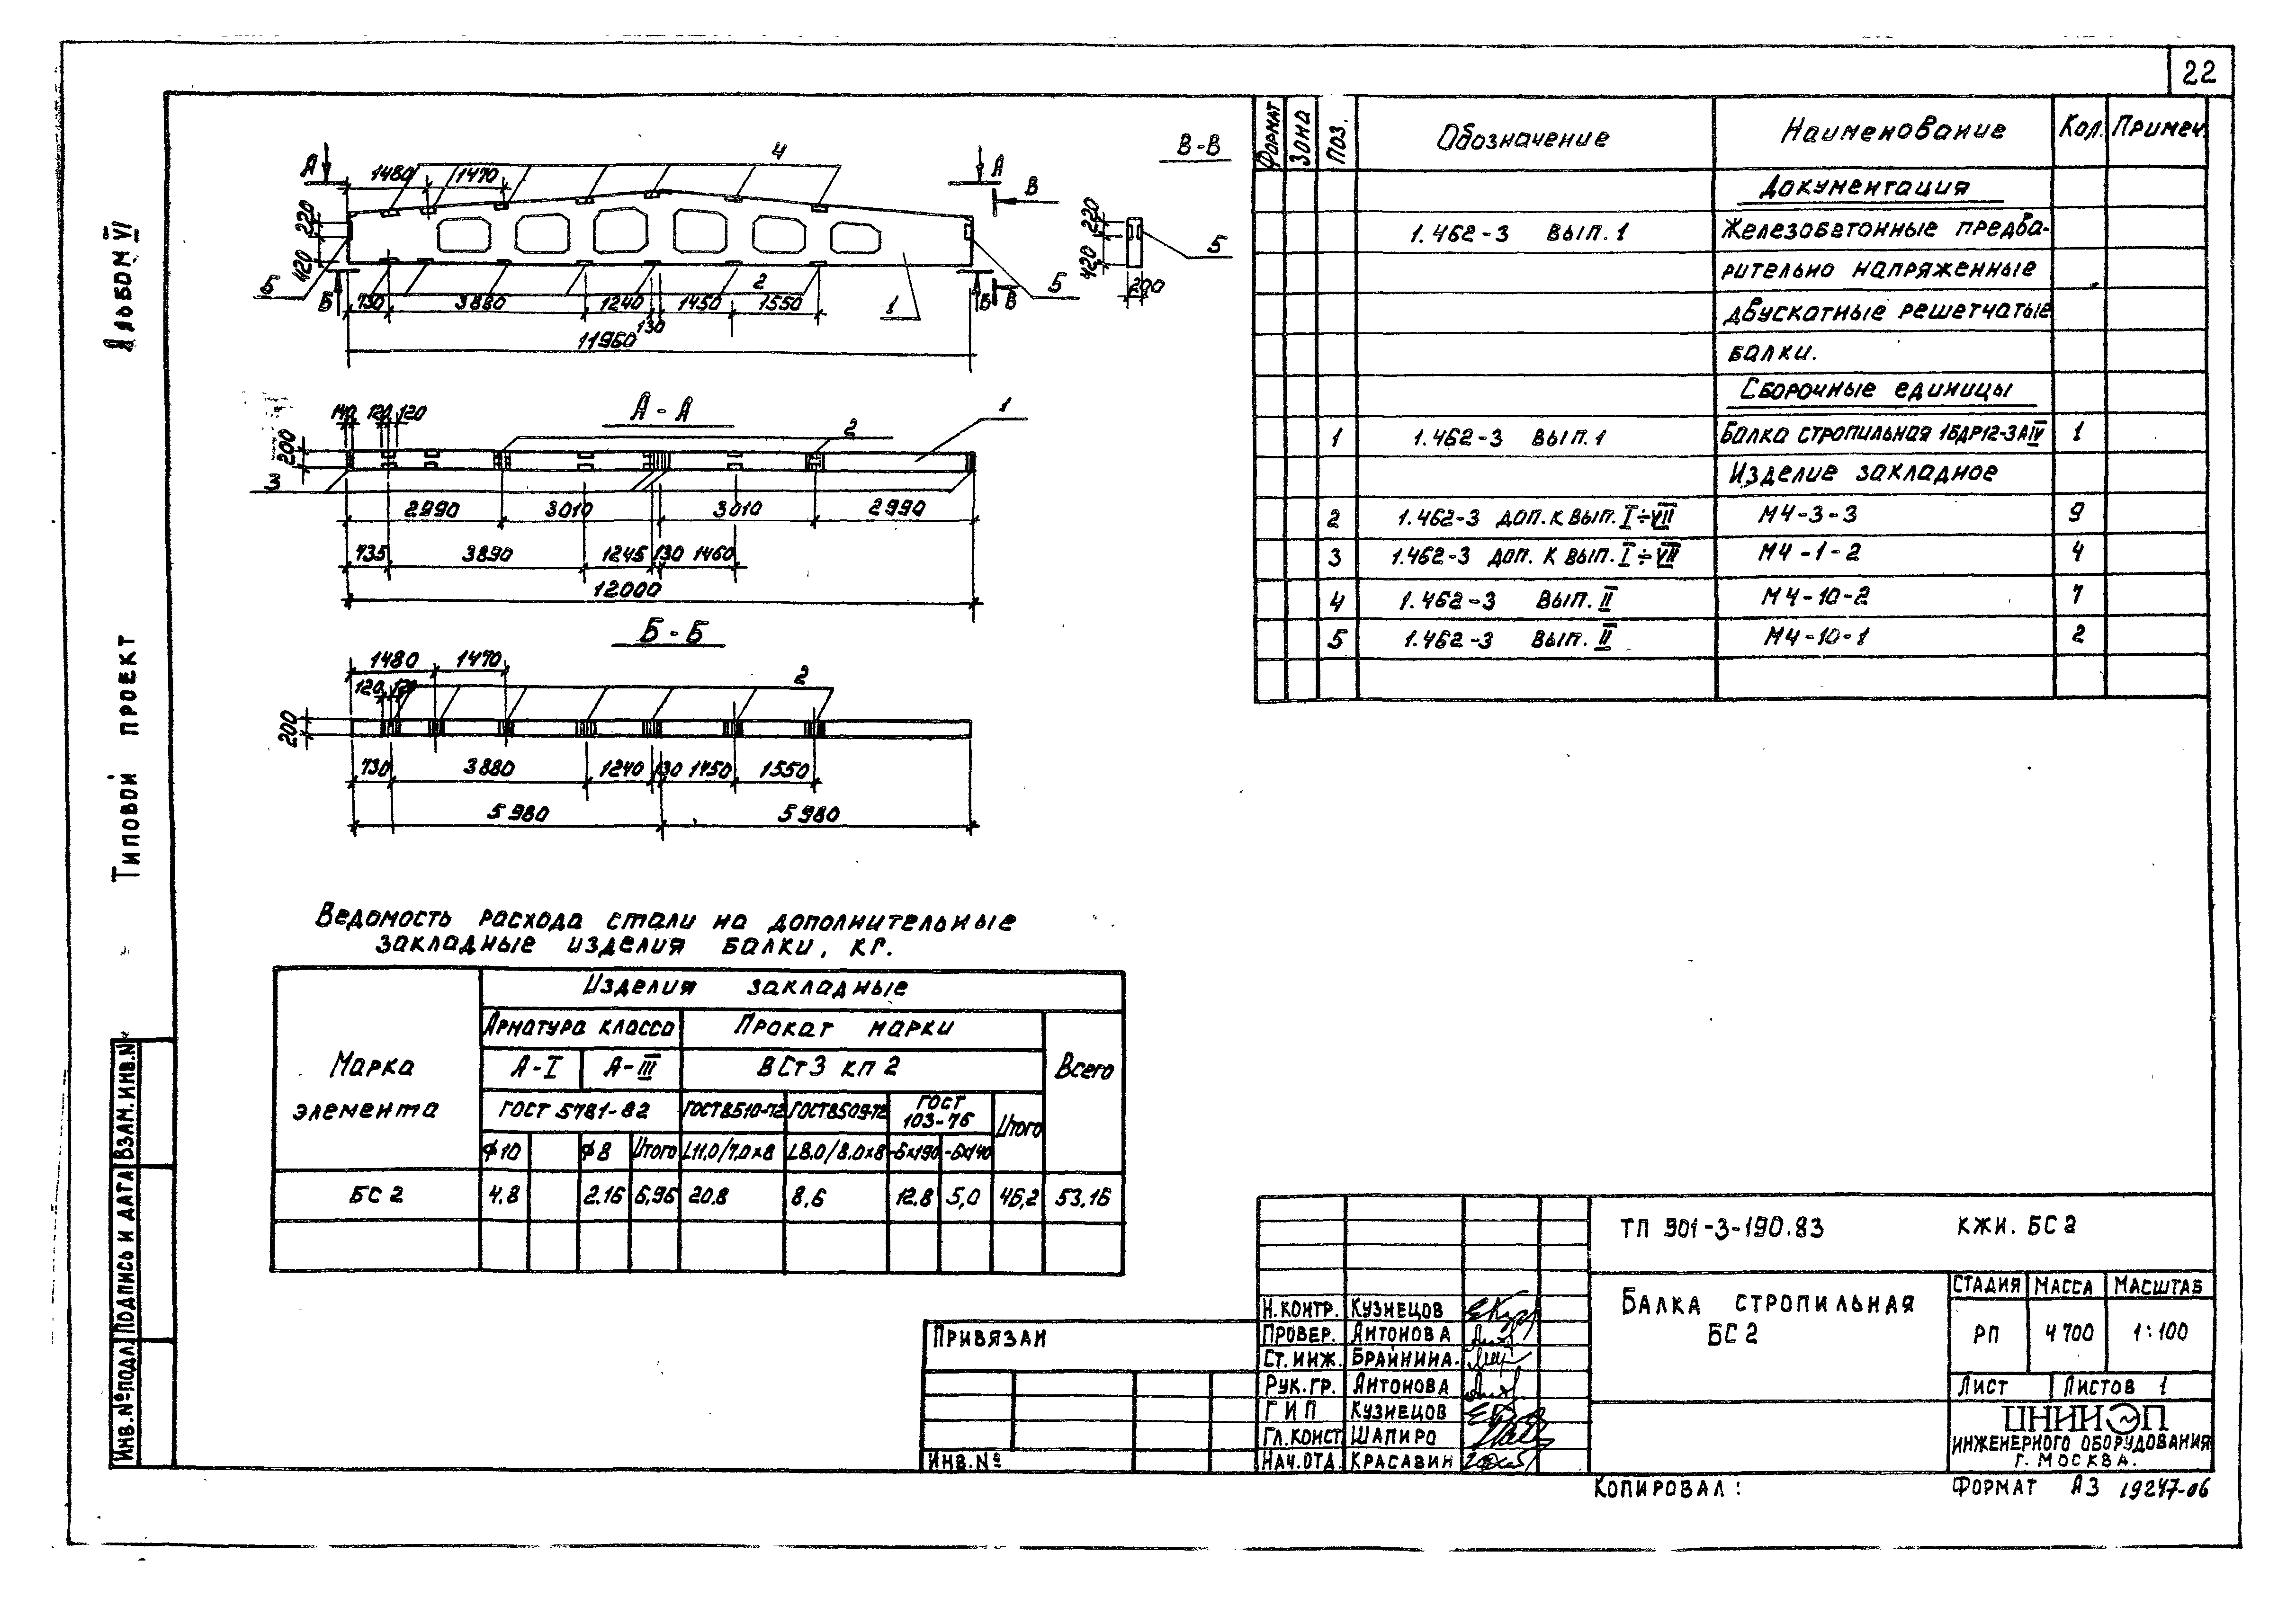 22
Альбом VI
Типовой проект
Взам. инв. №
Подпись и дата
Инв. № подл.
4
А
А
В
В-В
1480
1470
220
420
5
Б
2
1
5
Б
В
730
3880
1240
130
1450
1550
11960
220
420
5
200
А-А
140
120
120
200
3
2
1
2990
3010
3010
2990
735
3890
1245
130
1460
12000
Б-Б
1480
1470
120
120
200
2
730
3880
1240
130
1450
1550
5980
5980
Формат
Зона
Поз.
Обозначение
Наименование
Кол.
Примеч.
Документация
1.462-3 вып. 1 Железобетонные предва-
рительно напряженные
двускатные решетчатые
балки.
Сборочные единицы
1 1.462-3 вып. 1 Балка стропильная 1БДР12-3АIV 1
Изделие закладное
2 1.462-3 доп. к вып. I÷VII М4-3-3 9
3 1.462-3 доп. к вып. I÷VII М4-1-2 4
4 1.462-3 вып. II М4-10-2 7
5 1.462-3 вып. II М4-10-1 2
Ведомость расхода стали на дополнительные
закладные изделия балки, кг.
Марка
элемента
Изделия закладные
Арматура класса
Прокат марки
Всего
А-I
А-III
ВСт3 кп 2
ГОСТ 5781-82
ГОСТ 8510-72
ГОСТ 8509-72
ГОСТ
103-76
Итого
ф10
ф8
Итого
L11,0/7,0×8
L8.0/8.0×8
-6×190
-6×140
БС 2 4.8 2.16 6,96 20.8 8,6 12.8 5,0 46,2 53.16
ТП 901-3-190.83 КЖИ. БС 2
Балка стропильная
БС 2
Стадия Масса Масштаб
РП 4700 1:100
Лист Листов 1
ЦНИИЭП
инженерного оборудования
г. Москва.
Н.контр. Кузнецов
Провер. Антонова
Ст. инж. Брайнина.
Рук. гр. Антонова
ГИП Кузнецов
Гл. конст. Шапиро
Нач. отд. Красавин
Привязан
Инв. №
Копировал:
Формат А3 19247-06